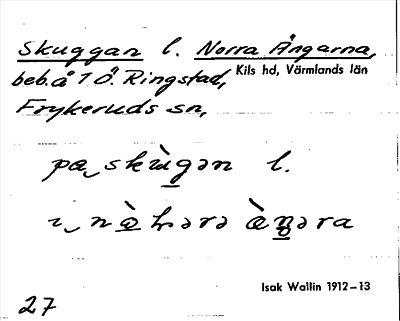 Skuggan l. Norra Ängarna,
beb. å 1 Ö. Ringstad, Kils hd, Värmlands län
Frykeruds sn,
pa skùgən l.
ı nò
Isak Wallin 1912–13
27